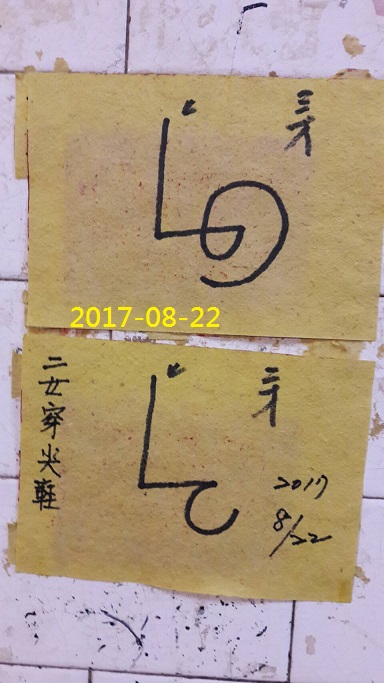 三才
2017-08-22
二女穿尖鞋
三才
2017
8/22